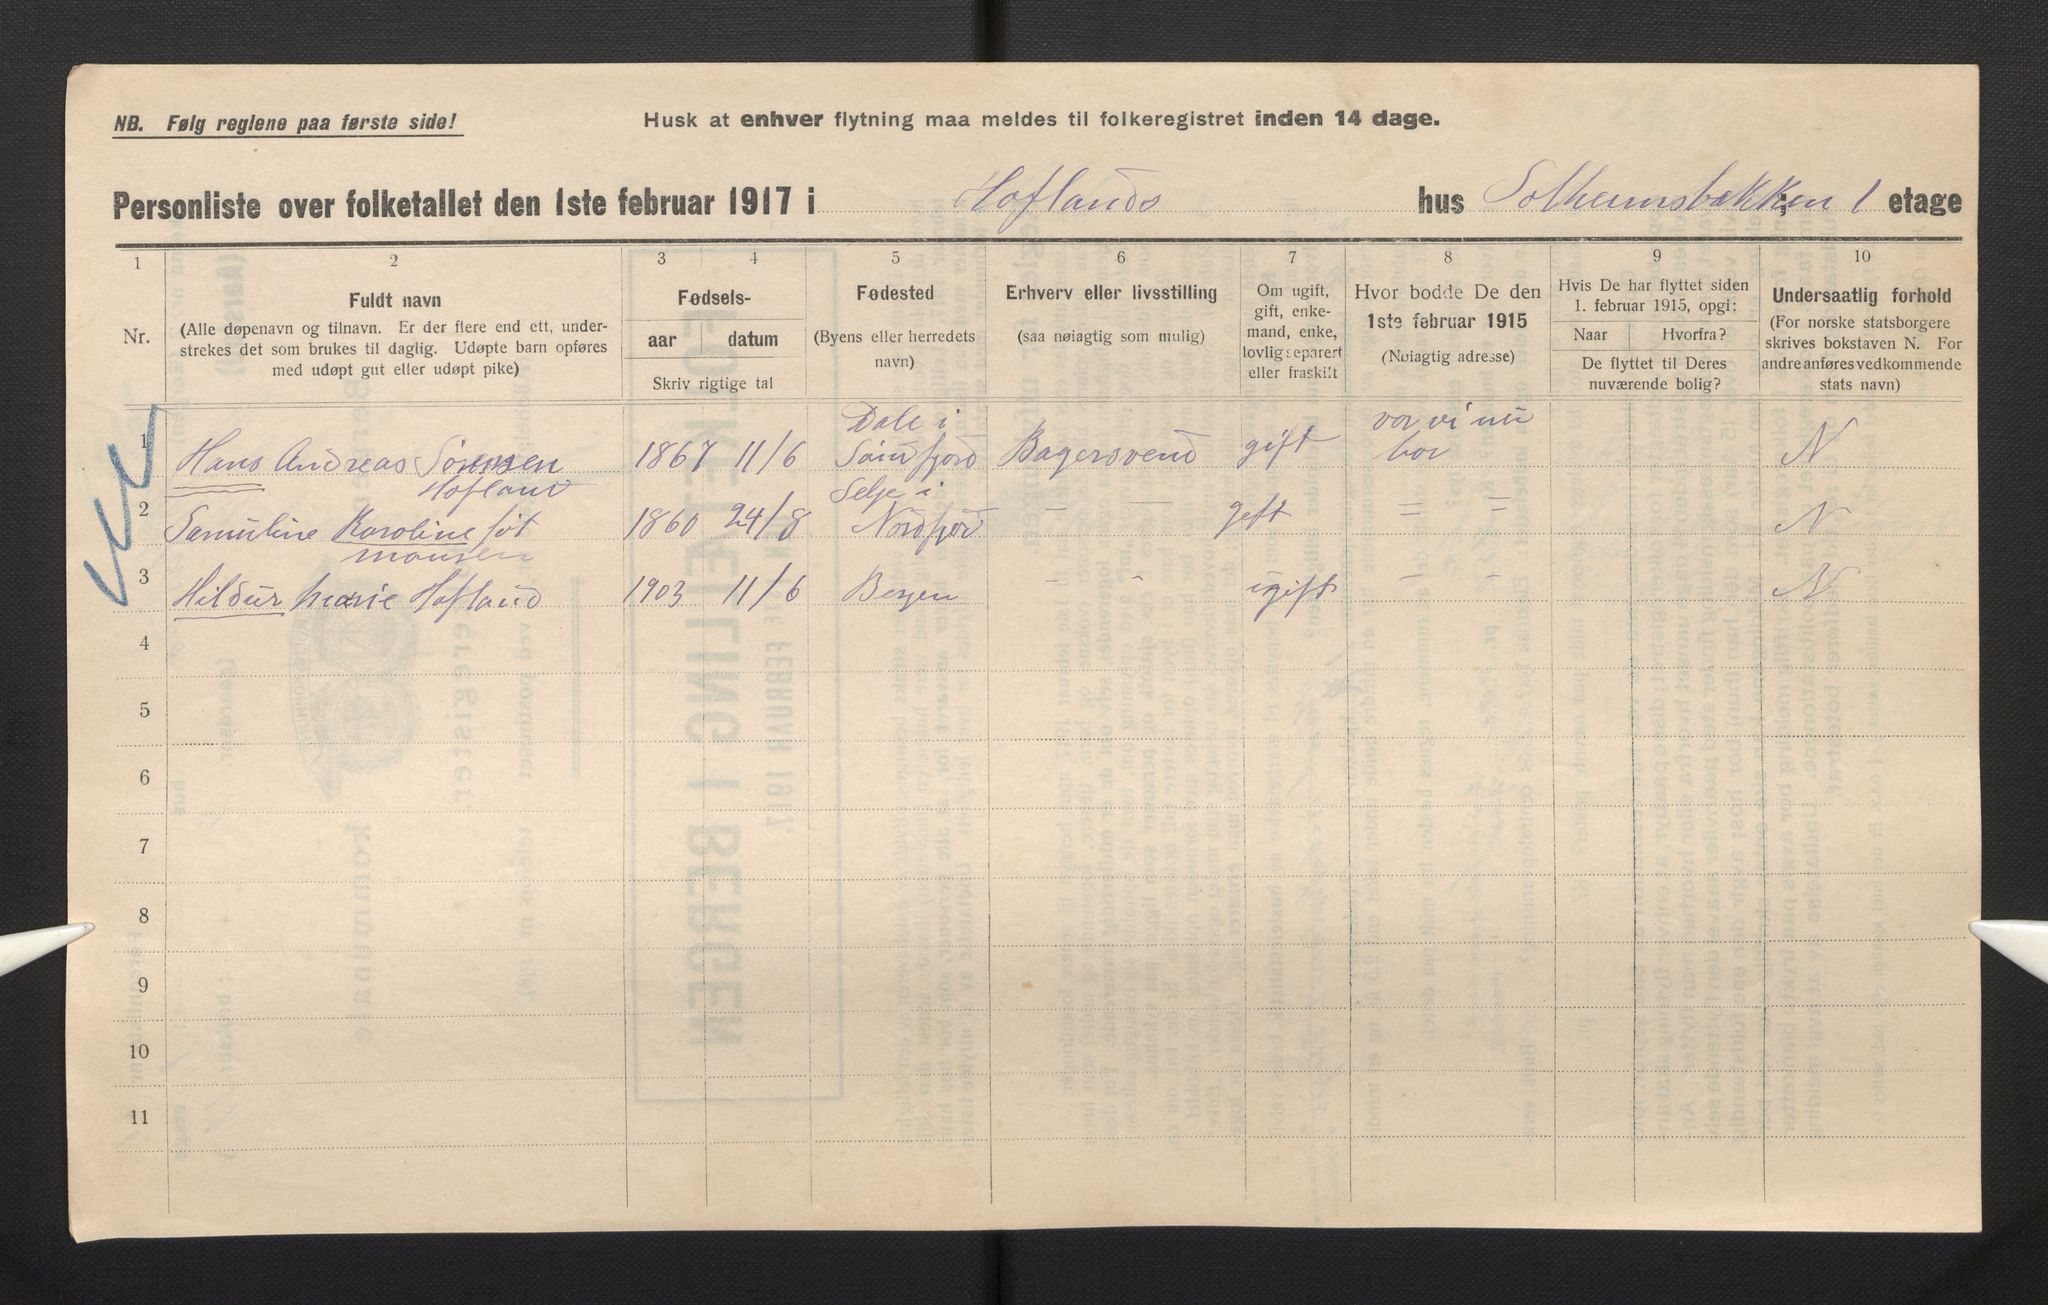 NB. Følg reglene paa første side!
Husk at enhver flytning maa meldes til folkeregistret inden 14 dage.
Personliste over folketallet den 1ste februar 1917 i Hoflands hus Solheimsbakken; 1 etage
1 2 3 4 5 6 7 8 9 10
Nr.
Fuldt navn
(Alle døpenavn og tilnavn. Er der flere end ett, under-
strekes det som brukes til daglig. Udøpte barn opføres
med udøpt gut eller udøpt pike)
Fødsels-
aar datum
Skriv rigtige tal
Fødested
(Byens eller herredets
navn)
Erhverv eller livsstilling
(saa nøiagtig som mulig)
Om ugift,
gift, enke-
mand, enke,
lovlig separert
eller fraskilt
Hvor bodde De den
1ste februar 1915
(Nøiagtig adresse)
Hvis De har flyttet siden
1. februar 1915, opgi:
Naar Hvorfra?
De flyttet til Deres
nuværende bolig?
Undersaatlig forhold
(For norske statsborgere
skrives bokstaven N. For
andre anføres vedkommende
stats navn)
Dale i vor vi nu
1 Hans Andreas Sørensen 1867 11/6 Søndfjord Bagersvend gift bor N
Hofland Selje i
2 Samuline Karoline 1860 24/8 Nordfjord - - gift = = N
3 Hildur Marie Hofland 1903 11/6 Bergen - " ugift - - N
4
5
6
7
8
9
10
11